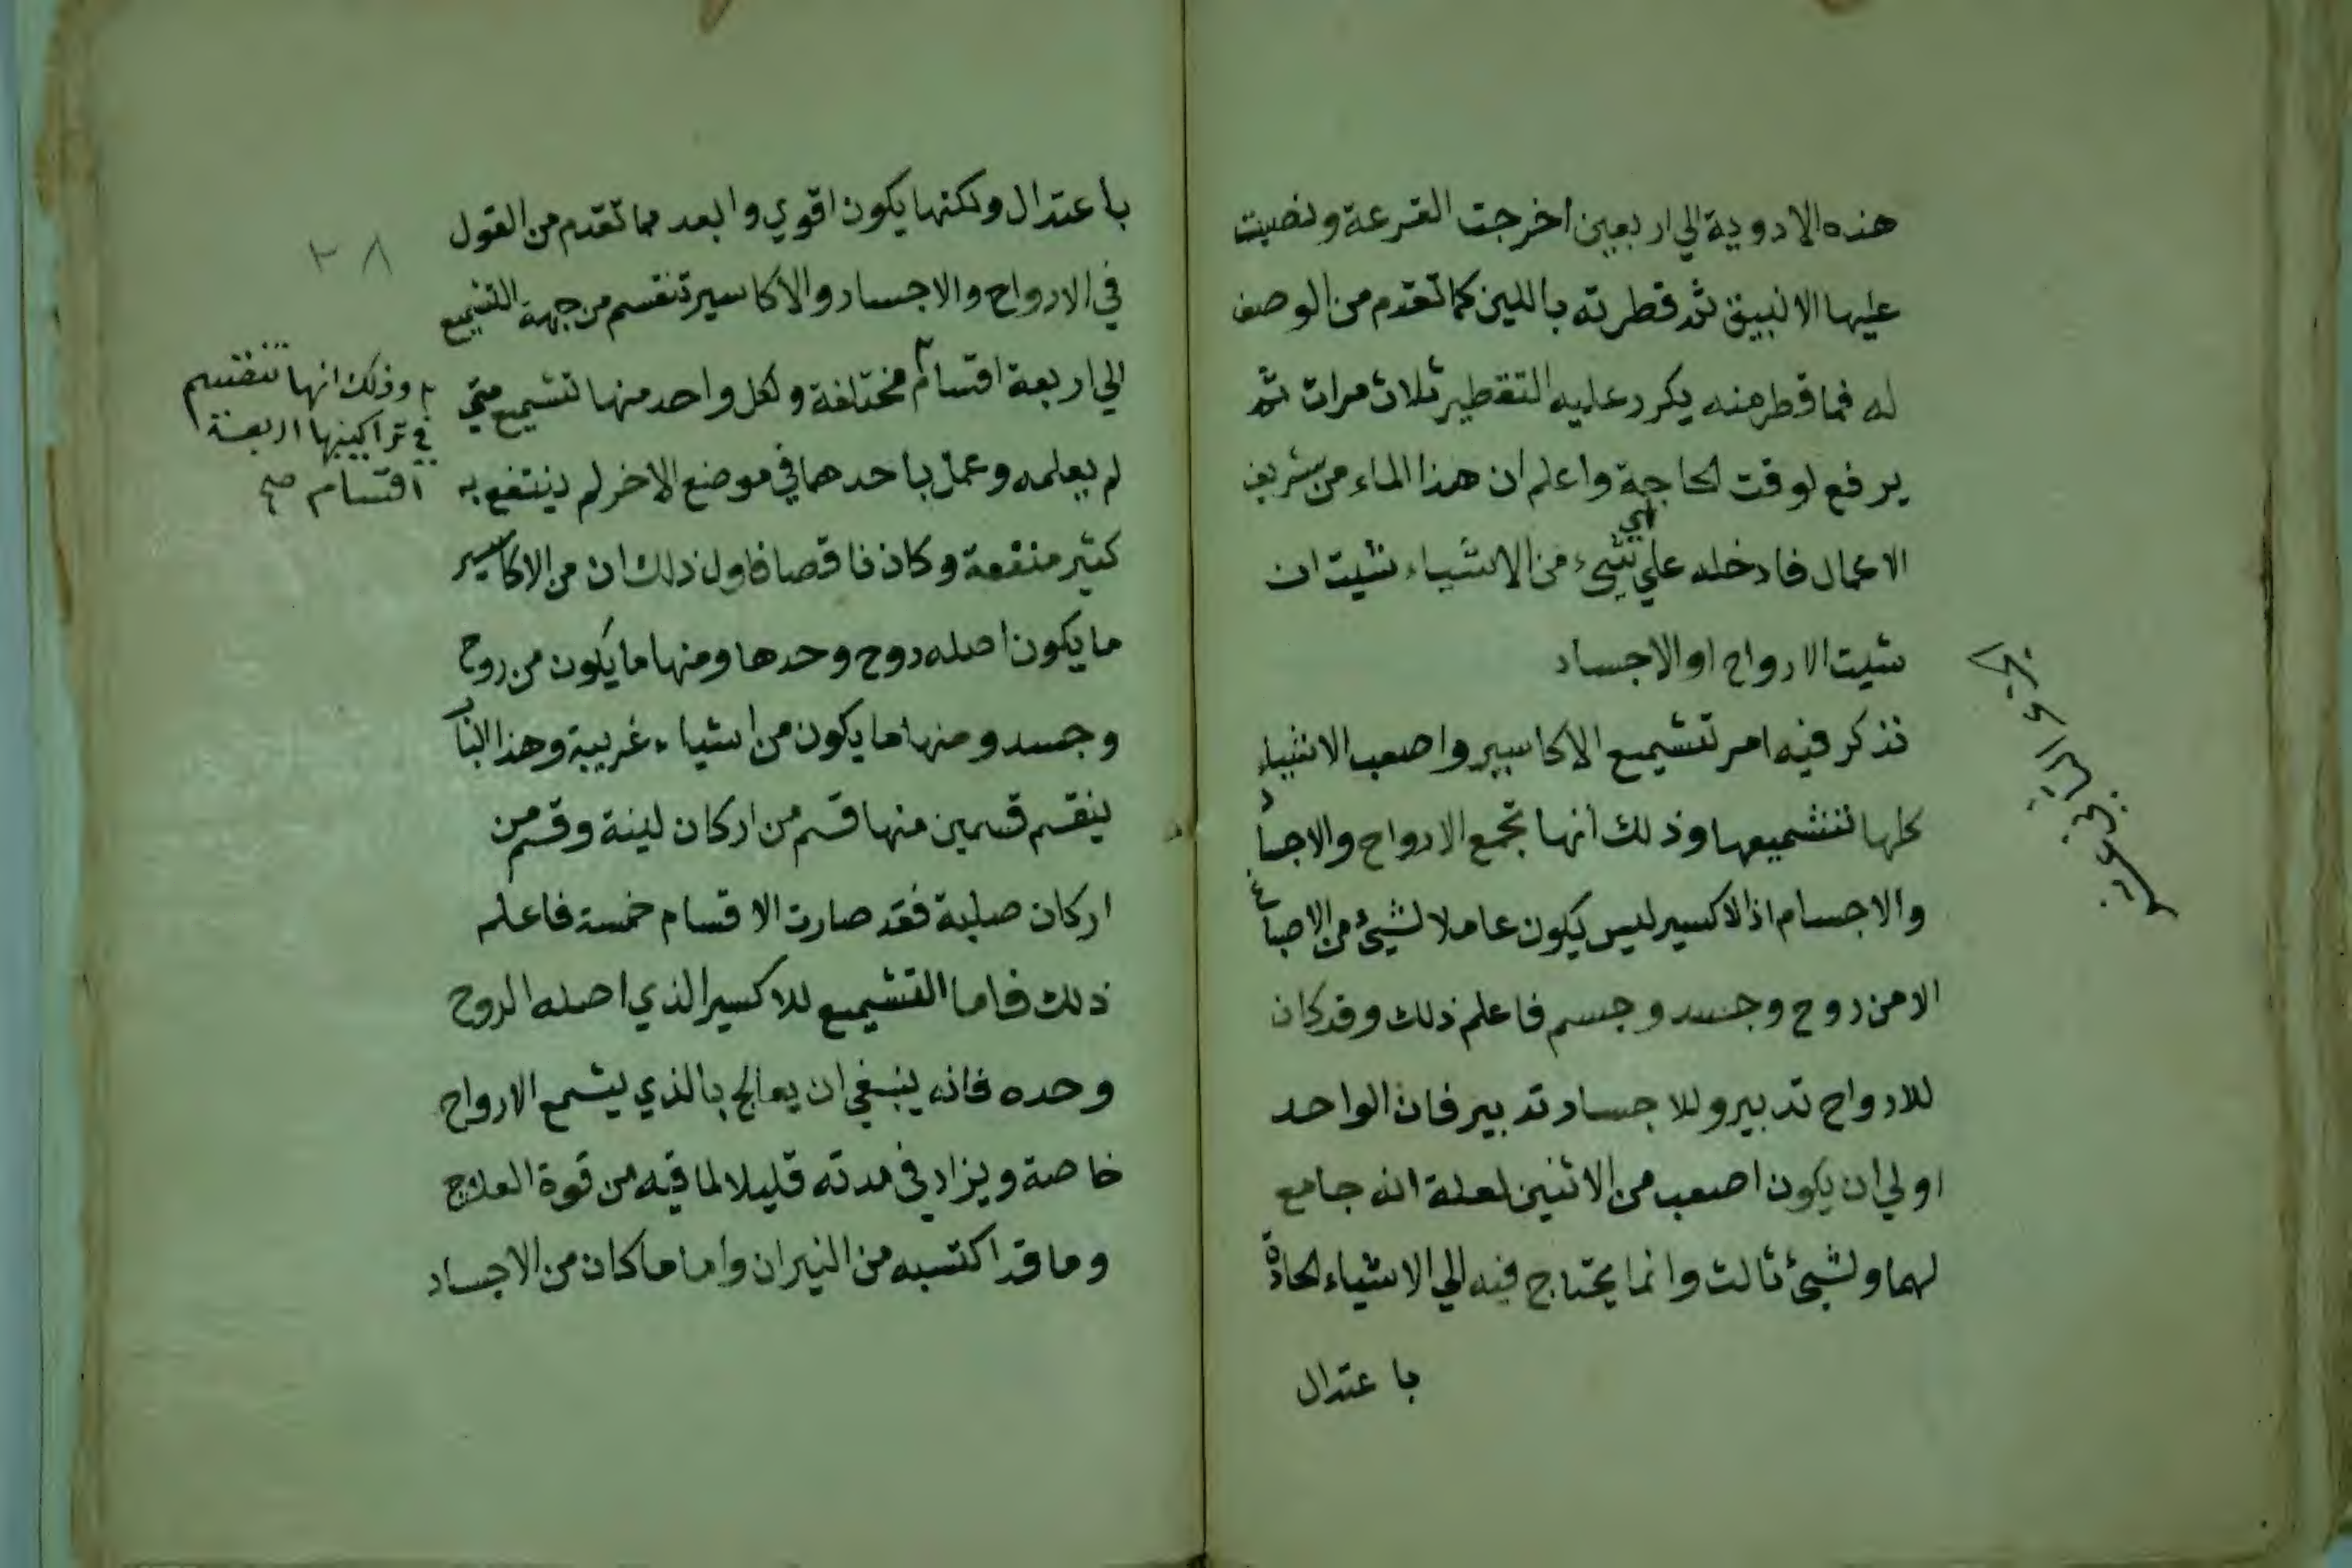 هذه الادوية الي اربعين اخرجت القرعة ونصبت
عليها الانبيق ثم قطرته باللين كما تقدم من الوصف
له فما قطر منه يكرر عليه التقطير ثلاث مرات ثم
يرفع لوقت الحاجة واعلم ان هذا الماء من شريف
الاعمال فادخله علي اي شيء من الاشياء شيت ان
شيت الارواح او الاجساد
نذكر فيه امر تشميع الاكاسير واصعب الاشياء
كلها تشميعها وذلك انها تجمع الارواح والاجساد
والاجسام اذ الاكسير ليس يكون عاملا لشيء من الاصباغ
الا من روح وجسد وجسم فاعلم ذلك وقد كان
للارواح تدبير وللاجساد تدبير فان الواحد
اولي ان يكون اصعب من الاثنين لعلة انه جامع
لهما ولشيء ثالث وانما يحتاج فيه الي الاشياء الحادة
با عتدال
باعتدال ولكنها يكون اقوي وابعد مما تقدم من القول
في الارواح والاجساد والاكاسير تنقسم من جهة التشميع
الي اربعة اقسام مختلفة ولكل واحد منها تشميع متي
لم يعلمه وعمل باحدهما في موضع الاخر لم ينتفع به
كثير منفعة وكان ناقصا فاول ذلك ان من الاكاسير
ما يكون اصله روح وحدها ومنها ما يكون من روح
وجسد ومنها ما يكون من اشياء غريبة وهذا الباب
ينقسم قسمين منها قسم من اركان لينة وقسم من
اركان صلبة فقد صارت الاقسام خمسة فاعلم
ذلك فاما التشميع للاكسير الذي اصله الروح
وحده فانه ينبغي ان يعالج بالذي يشمع الارواح
خاصة ويزاد في مدته قليلا لما فيه من قوة العلاج
وما قد اكتسبه من النيران واما ما كان من الاجساد
٢٨
وذلك انها تنقسم
في تراكيبها اربعة
اقسام صح